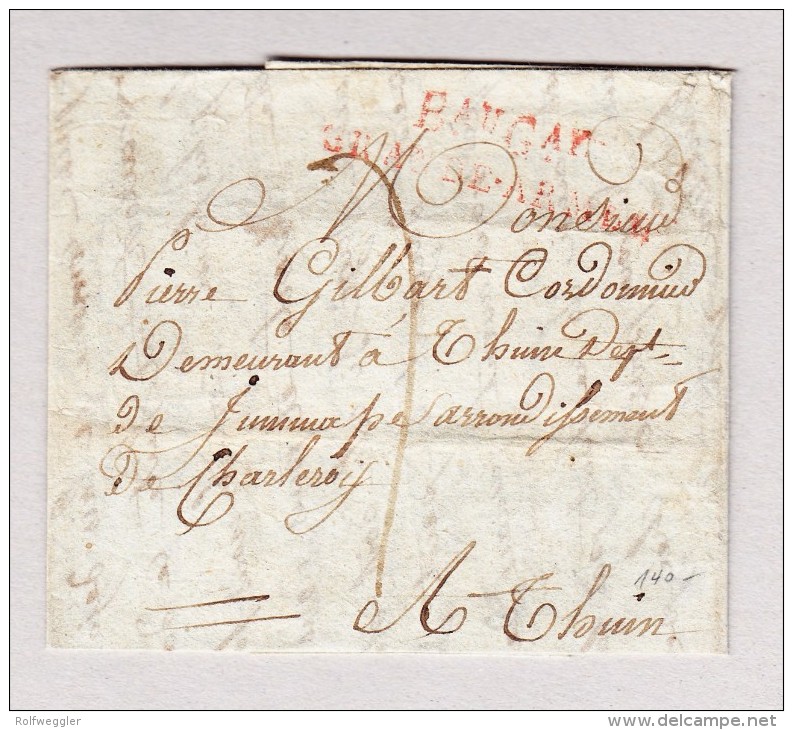 BAU GAR
GRANDE-ARMÉE
Monsieur
Pierre Gilbart Cordonnier
Demeurant á Thuin Dept
de Jummape arrondissement
De Charleroij
A Thuin
140 -
Rolfweggler
www.delcampe.net